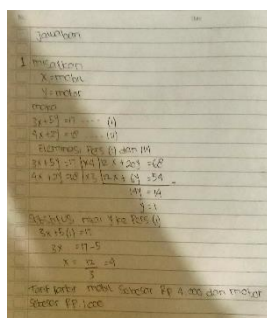 Jawaban
1 misalkan
x = mobil
y = motor
maka
3x + 5y = 17 ..... (i)
4x + 2y = 18 ..... (ii)
Eliminasi Pers (i) dan (ii)
3x + 5y = 17 | x4 | 12x + 20y = 68
4x + 2y = 18 | x3 | 12x + 6y = 54
14y = 14
y = 1
Substitusi nilai y ke Pers (i)
3x + 5(1) = 17
3x = 17 - 5
x = 12 = 4
3
Tarif parkir mobil sebesar Rp 4.000 dan motor
sebesar Rp 1.000